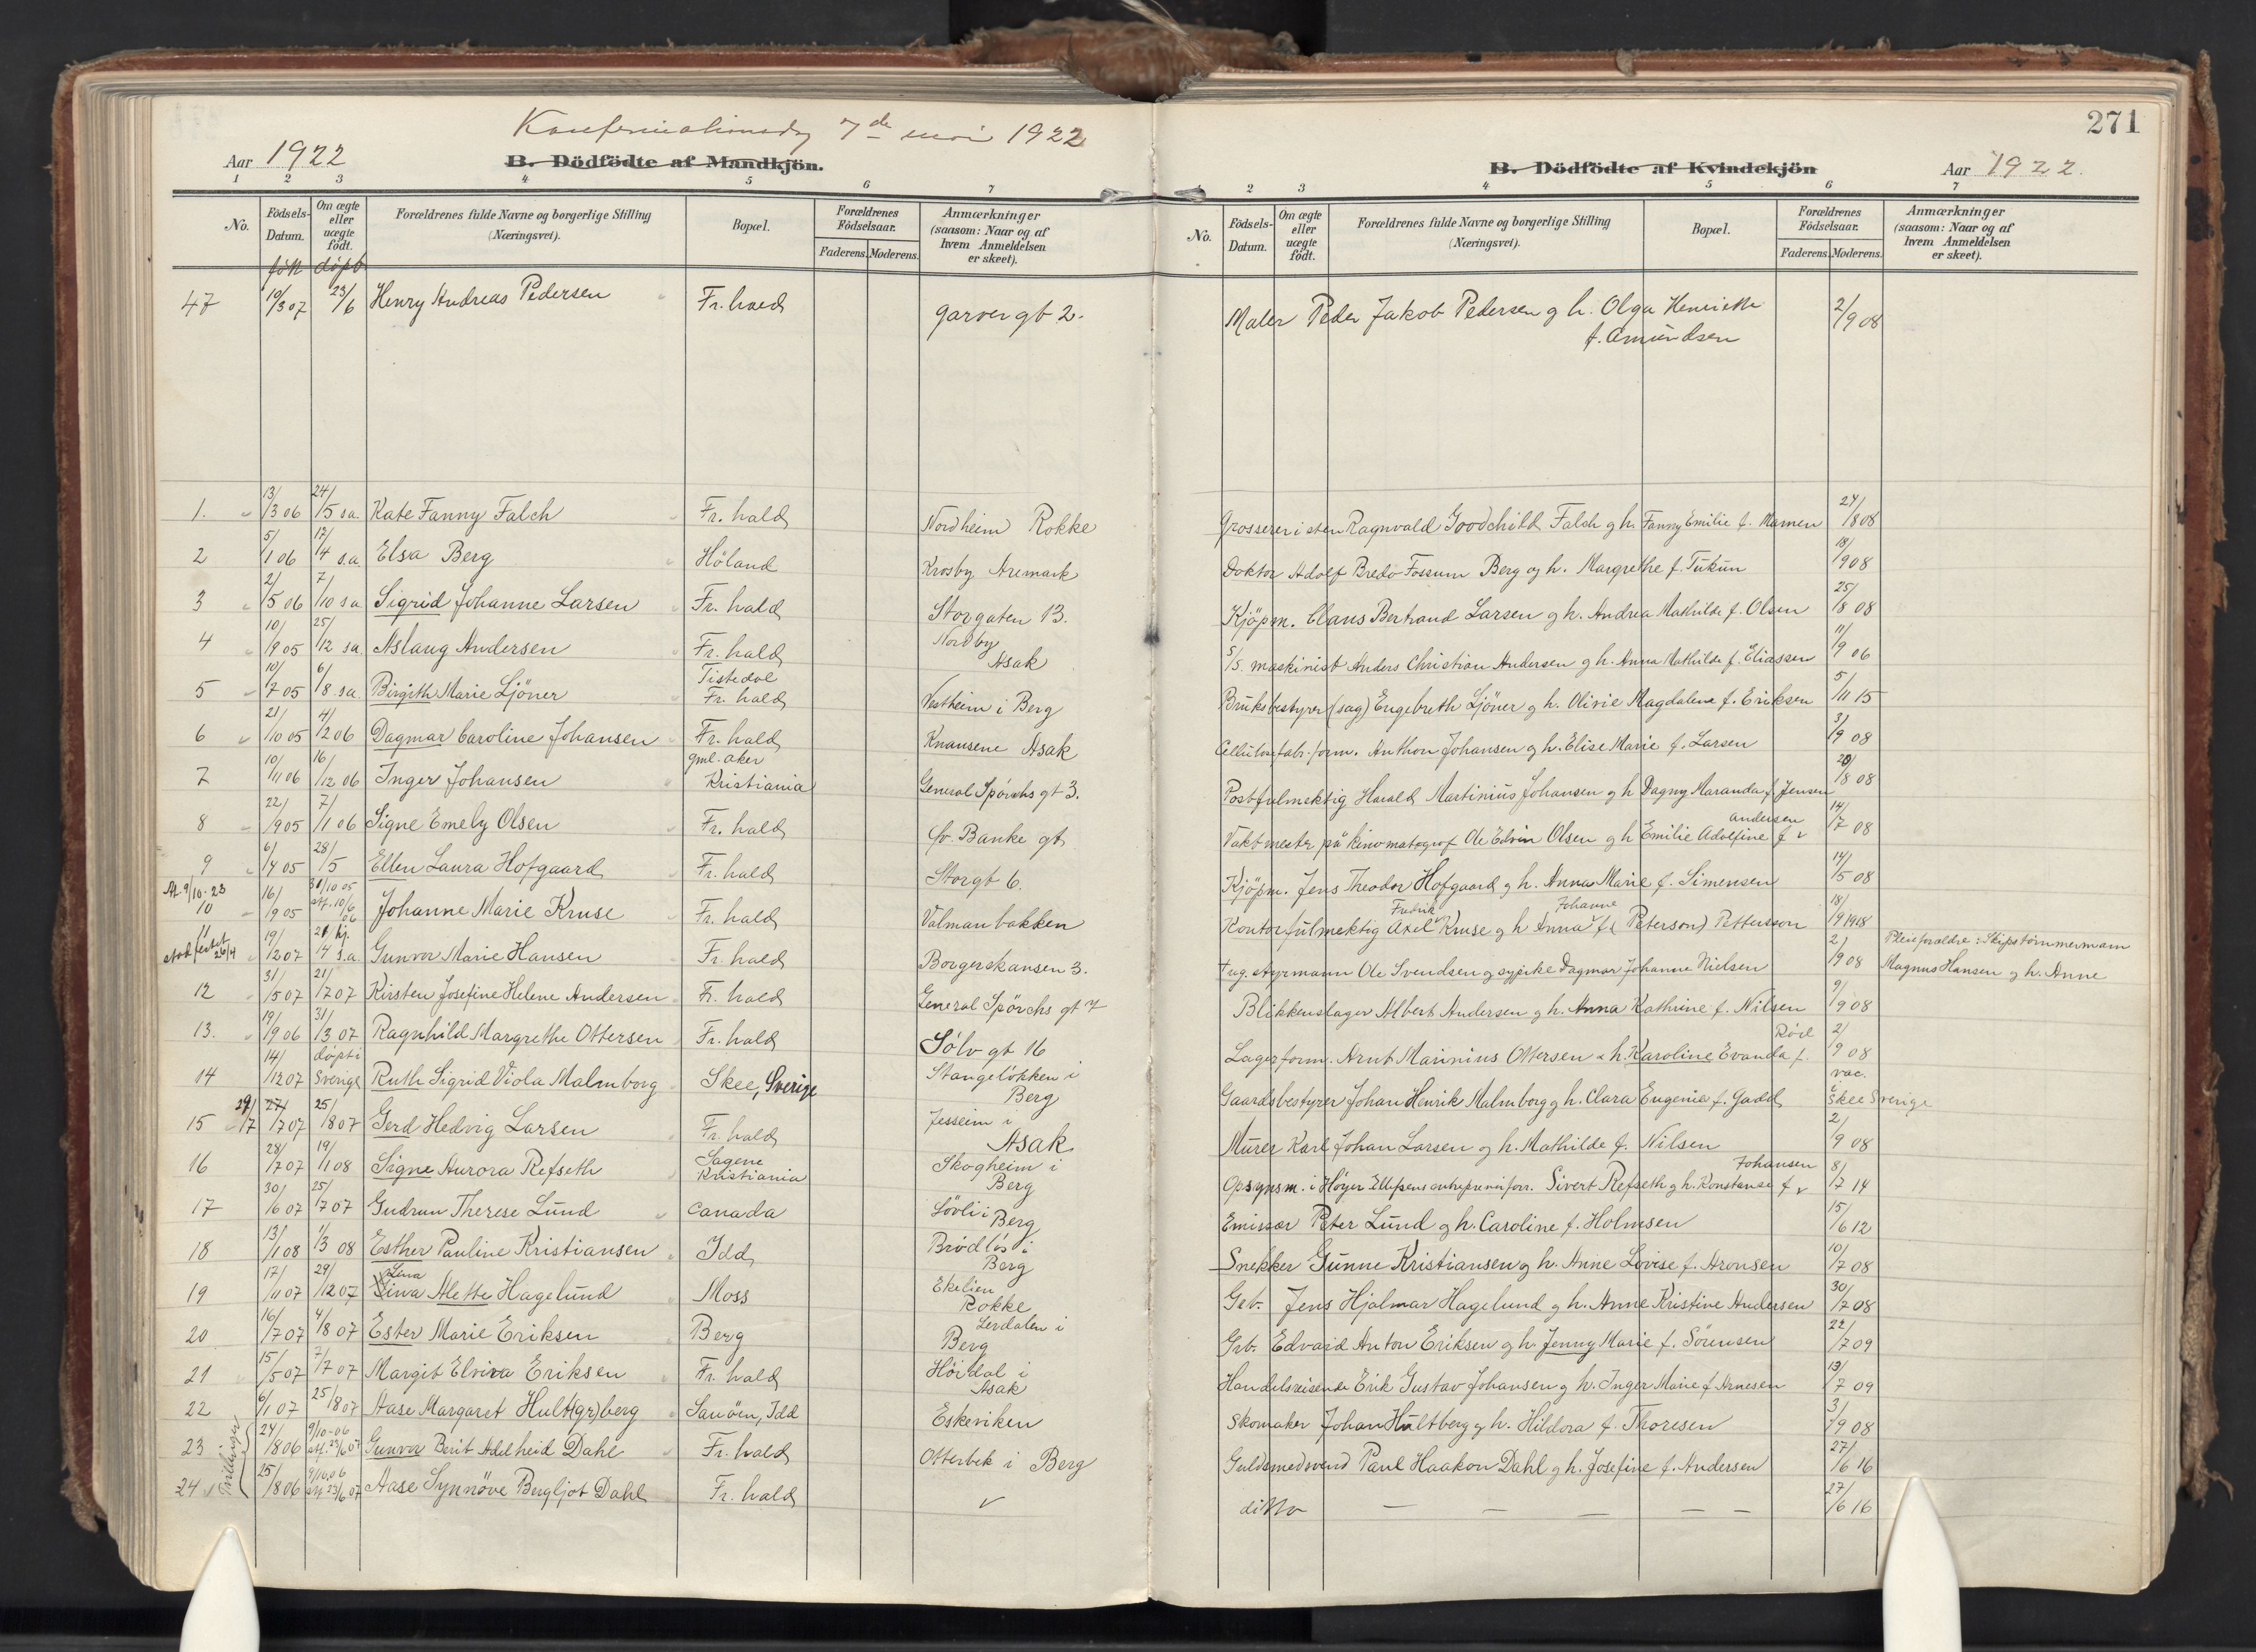 271
Konfirmationsdag 7de mai 1922
Aar 1922
B. Dödfödte af Mandkjön.
B. Dödfödte af Kvindekjön
Aar 1922.
1 2 3 4 5 6 7
1 2 3 4 5 6 7
No. Födsels-Datum. Om ægte eller uægte födt. Forældrenes fulde Navne og borgerlige Stilling (Næringsvei). Bopæl. Forældrenes Födselsaar. Faderens. Moderens. Anmærkninger (saasom: Naar og af hvem Anmeldelsen er skeet).
No. Födsels-Datum. Om ægte eller uægte födt. Forældrenes fulde Navne og borgerlige Stilling (Næringsvei). Bopæl. Forældrenes Födselsaar. Faderens. Moderens. Anmærkninger (saasom: Naar og af hvem Anmeldelsen er skeet).
født døpt
47 19/3 07 23/6 Henry Andreas Pedersen Fr.hald garver gt 2. Maler Peder Jakob Pedersen g h. Olga Henriette f. Amundsen 2/9 08
1. 13/3 06 24/5 s.a. Kate Fanny Falch Fr. hald Nordheim Rokke Grosserer i sten Ragnvald Goodchild Falch g h. Fanny Emilie f. Mamen 24/8 08
2 5/1 06 12/4 s.a. Elsa Berg Höland Krosby Aremark Doktor Adolf Bredo Fossum Berg og h. Margrethe f. Tukun 18/9 08
3 2/5 06 7/10 s.a Sigrid Johanne Larsen Fr. hald Storgaten 13. Kjöpm. Claus Bertrand Larsen g h. Andrea Mathilde f. Olsen 25/8 08
4 10/9 05 25/12 s.a. Aslaug Andersen Fr. hald Nordby Asak S/S. maskinist Anders Christian Andersen g h. Anna Mathilde f. Eliassen 11/9 06
5 10/7 05 6/8 s.a. Birgith Marie Ljöner Tistedal Fr. hald Vestheim i Berg Bruksbestyrer (sag) Engebreth Ljöner g h. Olivie Magdalene f. Eriksen 5/11 15
6 21/10 05 4/2 06 Dagmar Caroline Johansen Fr. hald Knausene Asak Cellulosefabr. form. Anthon Johansen g h. Elise Marie f. Larsen 3/9 08
7 10/11 06 16/12 06 Inger Johansen gml. Aker Kristiania General Spörchs gt 3. Postfulmektig Harald Martinius Johansen g h Dagny Maranda f. Jensen 29/8 08
8 22/9 05 7/1 06 Signe Emely Olsen Fr. hald Ov. Banke gt. Vaktmester på kinomatograf Ole Edvin Olsen g h Emilie Adolfine f. Andersen 14/7 08
9 6/4 05 28/5 Ellen Laura Hofgaard Fr. hald Storgt 6. Kjöpm. Jens Theodor Hofgaard g h. Anna Marie f. Simensen 14/5 08
At 9/10-23 10 16/9 05 31/10 05 stf. 10/6 06 Johanne Marie Kruse Fr. hald Valmanbakken Kontorfulmektig Axel Fredrik Kruse g h Anna Johanne f. (Peterson) Pettersson 18/9 1908
11 19/12 07 21/4 hj. s.a. Gunvor Marie Hansen Fr. hald Borgerskansen 3. † ug. styrmann Ole Svendsen g sypike Dagmar Johanne Nielsen 2/9 08 Pleieforældre: Skipstømmermann Magnus Hansen g h. Anne
12 31/5 07 21/7 07 Kirsten Josefine Helene Andersen Fr. hald General Spörchs gt 7 Blikkenslager Albert Andersen g h. Anna Kathrine f. Nilsen 9/9 08
13. 19/9 06 31/3 07 Ragnhild Margrethe Ottersen Fr. hald Sølv gt 16 Lagerform. Arnt Marinius Ottersen & h. Karoline Evanda f. Röed 2/9 08
14 14/12 07 døpt i Sverige Ruth Sigrid Viola Malmborg Skee, Sverige Stangeløkken i Berg Gaardsbestyrer Johan Henrik Malmborg g h. Clara Eugenie f. Gadd vac. i Skee Sverige
15 29/7 27/7 07 25/8 07 Gerd Hedvig Larsen Fr. hald Jesseim i Asak Murer Karl Johan Larsen og h. Mathilde f. Nilsen 2/9 08
16 28/7 07 19/1 08 Signe Aurora Refseth Sagene Kristiania Skogheim i Berg Opsynsm. i Høyer Ellefsens entreprenörforr. Sivert Refseth g h. Konstanse f. Johansen 8/7 14
17 30/6 07 25/7 07 Gudrun Therese Lund Canada Løvli i Berg Emissær Peter Lund g h. Caroline f. Holmsen 15/6 12
18 13/1 08 1/3 08 Esther Pauline Kristiansen Idd Brödløs i Berg Snekker Gunne Kristiansen g h. Anne Lovise f. Aronsen 10/7 08
19 17/11 07 29/12 07 Lina Alette Hagelund Moss Ekelien Rokke Grb. Jens Hjalmar Hagelund g h. Anne Kristine Andersen 30/7 08
20 16/7 07 4/8 07 Ester Marie Eriksen Berg Lerdalen i Berg Grb. Edvard Anton Eriksen g h. Jenny Marie f. Sörensen 22/7 09
21 15/5 07 7/7 07 Margit Elvira Eriksen Fr. hald Höidal i Asak Handelsreisende Erik Gustav Johansen g h. Inger Marie f. Arnesen 13/7 09
22 6/1 07 25/8 07 Aase Margaret Hult(gr)berg Sauöen, Idd Eskeviken Skomaker Johan Hultberg g h. Hildora f. Thoresen 3/9 08
Tvillinger
23 24/8 06 9/10-06 stf. 23/6 07 Gunvor Berit Adelheid Dahl Fr. hald Otterbek i Berg Guldsmedsvend Paul Haakon Dahl g h. Josefine f. Andersen 27/6 16
24 25/8 06 9/10.06 stf 23/6 07 Aase Synnöve Bergljot Dahl Fr. hald ditto — — — — — 27/6 16